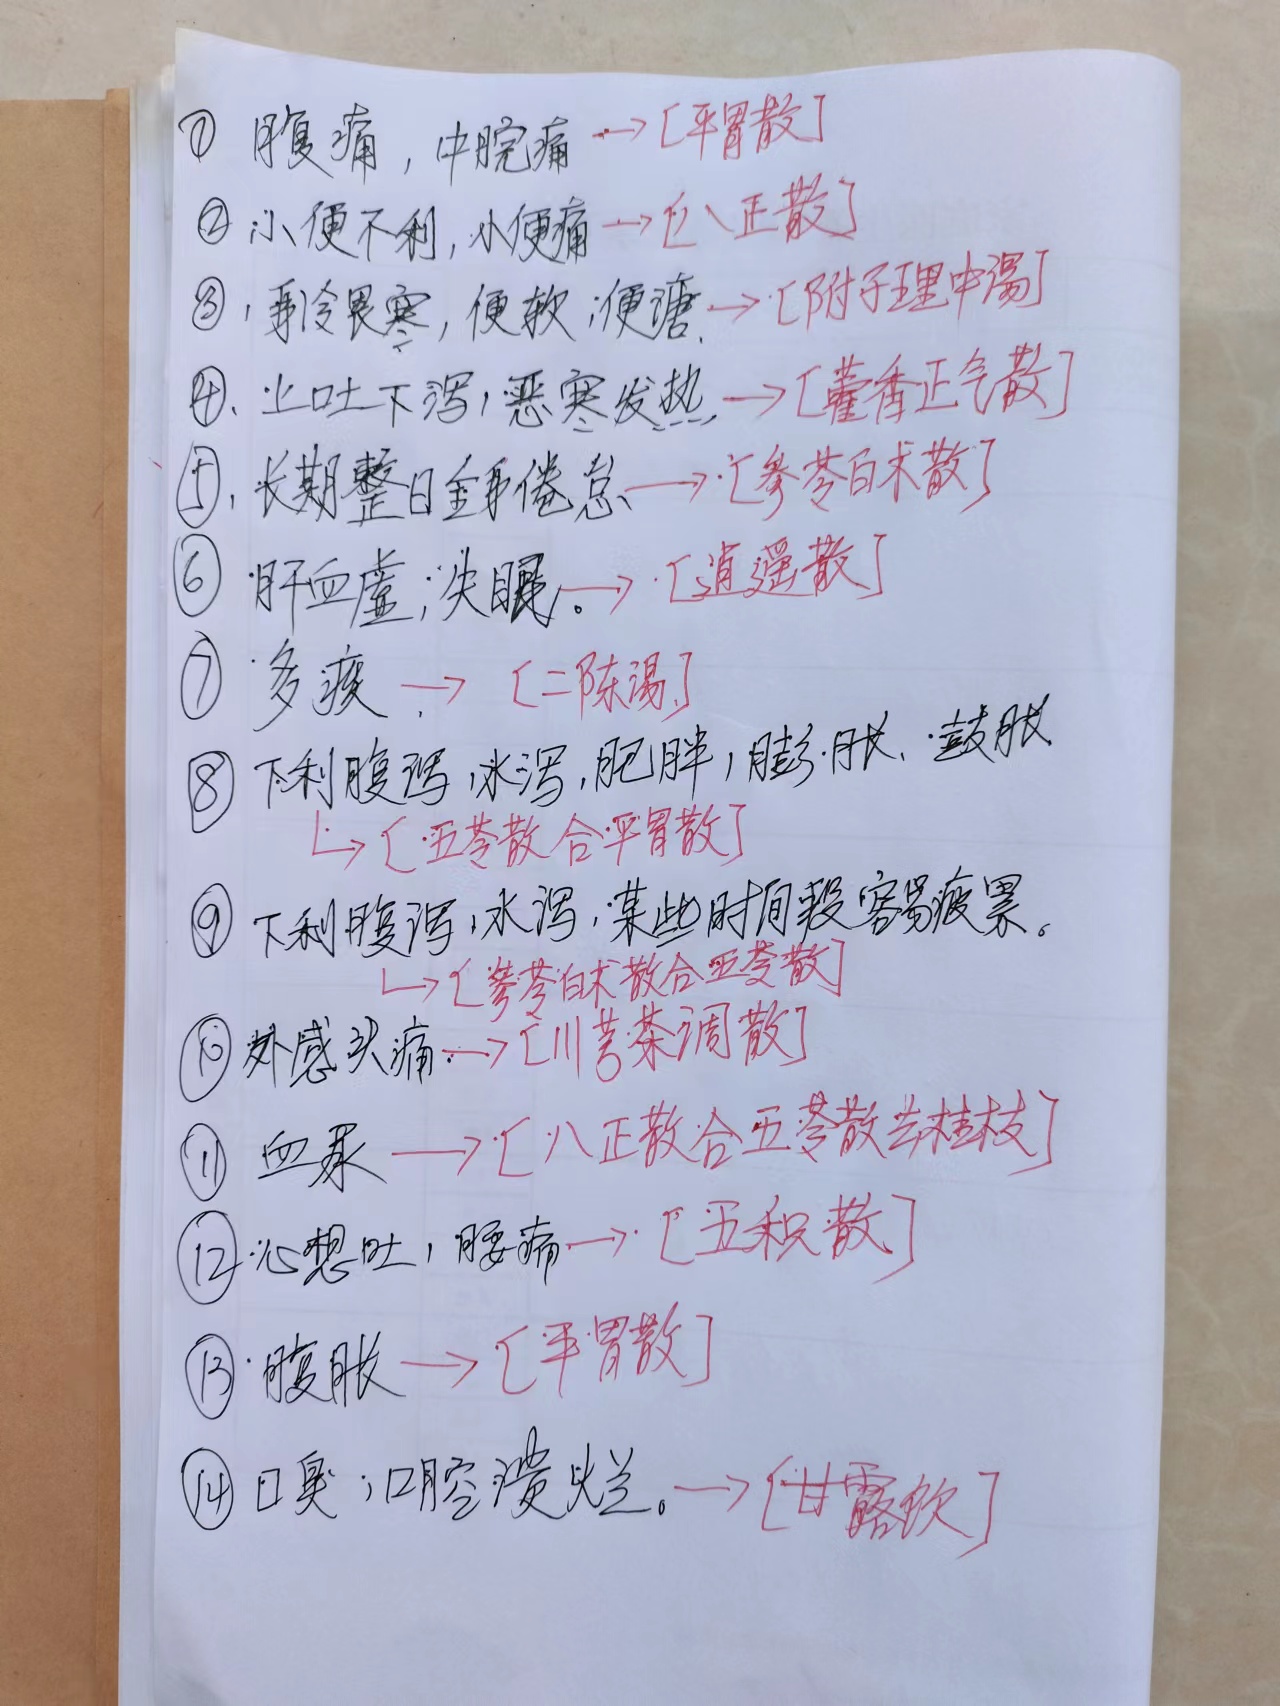 ① 腹痛,中脘痛→[平胃散]
② 小便不利,小便痛→[八正散]
③、身冷畏寒,便软,便溏→[附子理中汤]
④、上吐下泻,恶寒发热→[藿香正气散]
⑤、长期整日全身倦怠→[参苓白术散]
⑥ 肝血虚,失眠。→[逍遥散]
⑦ 多痰→[二陈汤]
⑧ 下利腹泻,水泻,肥胖,膨胀、鼓胀
↳[五苓散合平胃散]
⑨ 下利腹泻,水泻,某些时间段容易疲累。
↳[参苓白术散合五苓散]
⑩ 外感头痛→[川芎茶调散]
⑪ 血尿→[八正散合五苓散去桂枝]
⑫ 心想吐,腰痛→[五积散]
⑬ 腹胀→[平胃散]
⑭ 口臭,口腔溃烂。→[甘露饮]